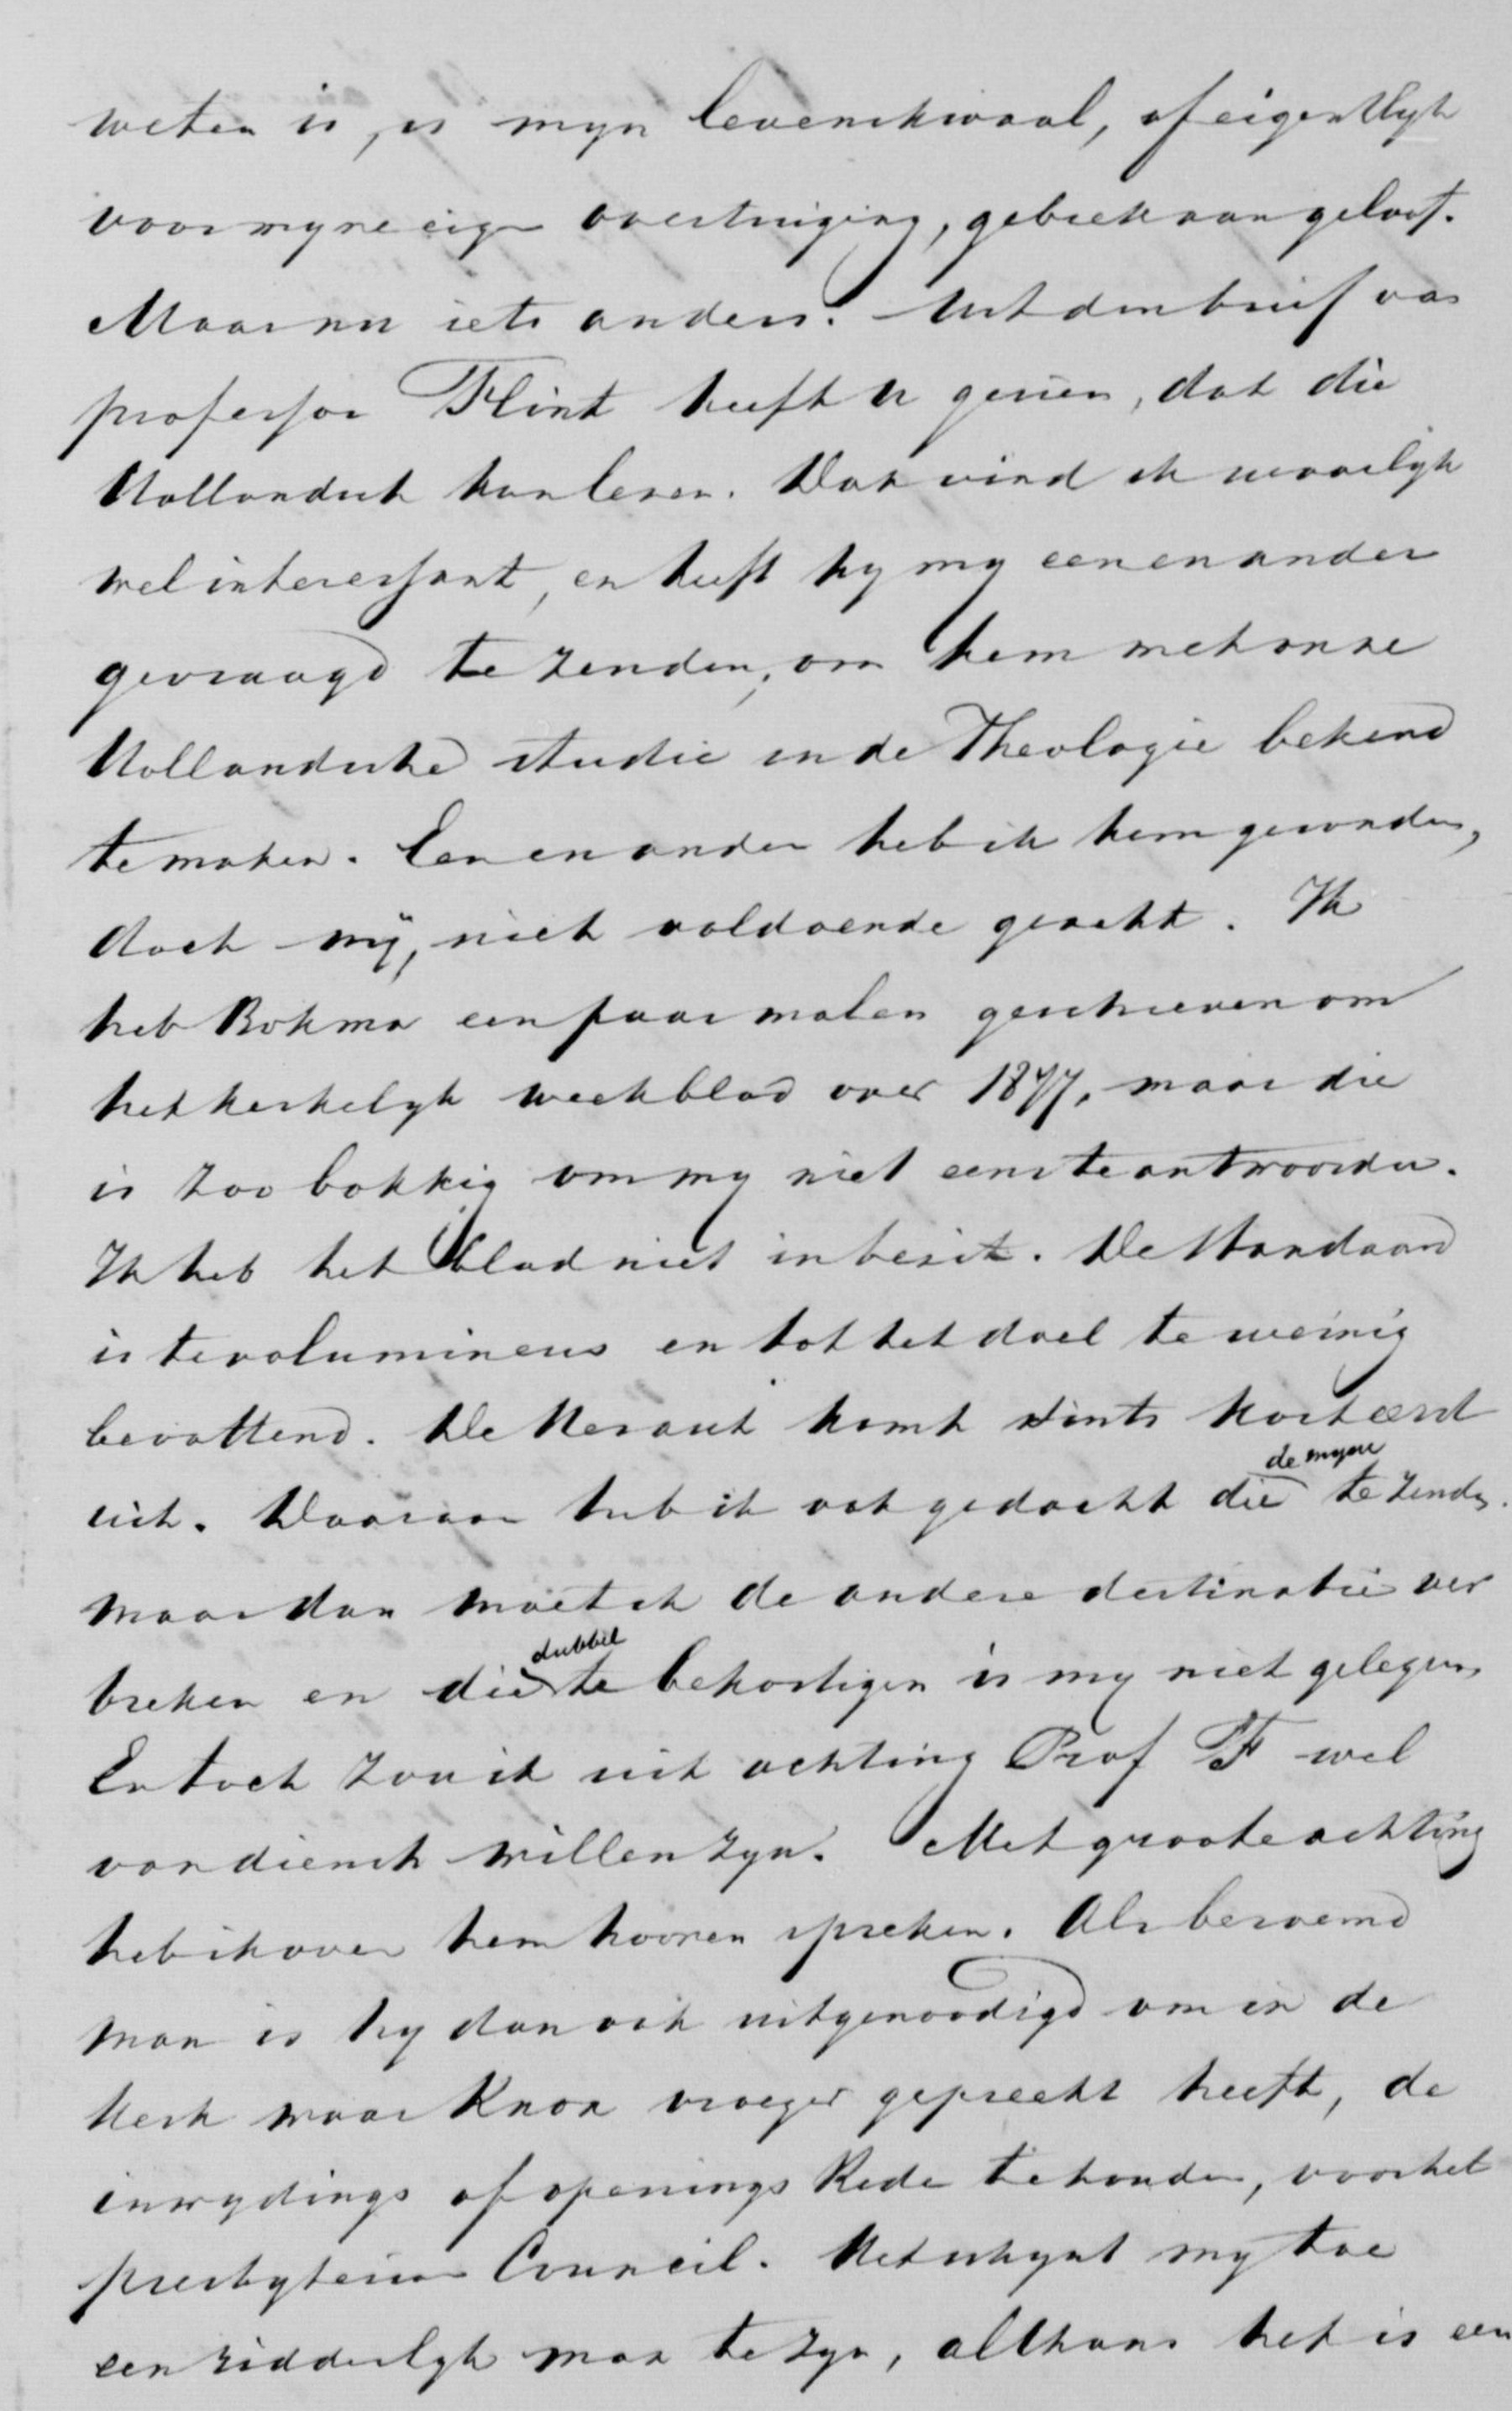 weten is, is myn levenskwaal, of eigentlyk
voor myne eige overtuiging, gebrek aan geloof.
Maar nu iets anders. Uit den brief van
professor Flint heeft u gezien, dat die
Hollandsch kan lezen. Dat vind ik waarlyk
wel interessant, en heeft hy my een en ander
gevraagd te zenden, om hem met onze
Hollandsche studie in de Theologie bekend
te maken. Een en ander heb ik hem gezonden,
doch mij, niet voldoende geacht. Ik
heb Bokma een paar malen geschreven om
het kerkelyk weekblad over 1877, maar die
is zoo bokkig om my niet eens te antwoorden.
Ik heb het blad niet in bezit. De Standaard
is te volumineus en tot het doel te weinig
bevattend. De Heraut komt sints kort eerst
uit. Daaraan heb ik ook gedacht die de myne te zenden.
maar dan moet ik de andere destinatie ver
breken en die dubbel te bekostigen is my niet gelegen
En toch zou ik uit achting Prof F wel
van dienst willen zyn. Met groote achting
heb ik over hem hooren spreken. Als beroemd
man is hy dan ook uitgenoodigd om in de
Kerk waar Knox vroeger gepreekt heeft, de
inwydings of openings Rede te houden, voor het
presbyterian Council. Het schynt my toe
een ridderlyk man te zyn, althans het is een